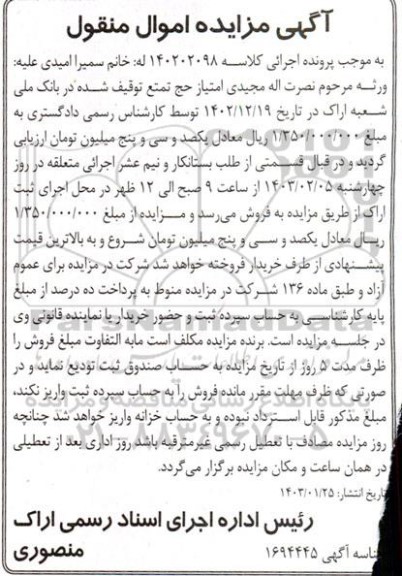 آگهی مزایده اموال منقول
به موجب پرونده اجرائی کلاسه ۱۴۰۲۰۲۰۹۸ له: خانم سمیرا امیدی علیه:
ورثه مرحوم نصرت اله مجیدی امتیاز حج تمتع توقیف شده در بانک ملی
شعبه اراک در تاریخ ۱۴۰۲/۱۲/۱۹ توسط کارشناس رسمی دادگستری به
مبلغ ۱/۳۵۰/۰۰۰/۰۰۰ ریال معادل یکصد و سی و پنج میلیون تومان ارزیابی
گردید و در قبال قسمتی از طلب بستانکار و نیم عشر اجرائی متعلقه در روز
چهارشنبه ۱۴۰۳/۰۲/۰۵ از ساعت ۹ صبح الی ۱۲ ظهر در محل اجرای ثبت
اراک از طریق مزایده به فروش می‌رسد و مزایده از مبلغ ۱/۳۵۰/۰۰۰/۰۰۰
ریال معادل یکصد و سی و پنج میلیون تومان شروع و به بالاترین قیمت
پیشنهادی از طرف خریدار فروخته خواهد شد شرکت در مزایده برای عموم
آزاد و طبق ماده ۱۳۶ شرکت در مزایده منوط به پرداخت ده درصد از مبلغ
پایه کارشناسی به حساب سپرده ثبت و حضور خریدار یا نماینده قانونی وی
در جلسه مزایده است. برنده مزایده مکلف است مابه التفاوت مبلغ فروش را
ظرف مدت ۵ روز از تاریخ مزایده به حساب صندوق ثبت تودیع نماید و در
صورتی که ظرف مهلت مقرر مانده فروش را به حساب سپرده ثبت واریز نکند،
مبلغ مذکور قابل استرداد نبوده و به حساب خزانه واریز خواهد شد چنانچه
روز مزایده مصادف با تعطیل رسمی غیرمترقبه باشد روز اداری بعد از تعطیلی
در همان ساعت و مکان مزایده برگزار می‌گردد.
تاریخ انتشار: ۱۴۰۳/۰۱/۲۵
رئیس اداره اجرای اسناد رسمی اراک
منصوری
شناسه آگهی ۱۶۹۴۴۴۵